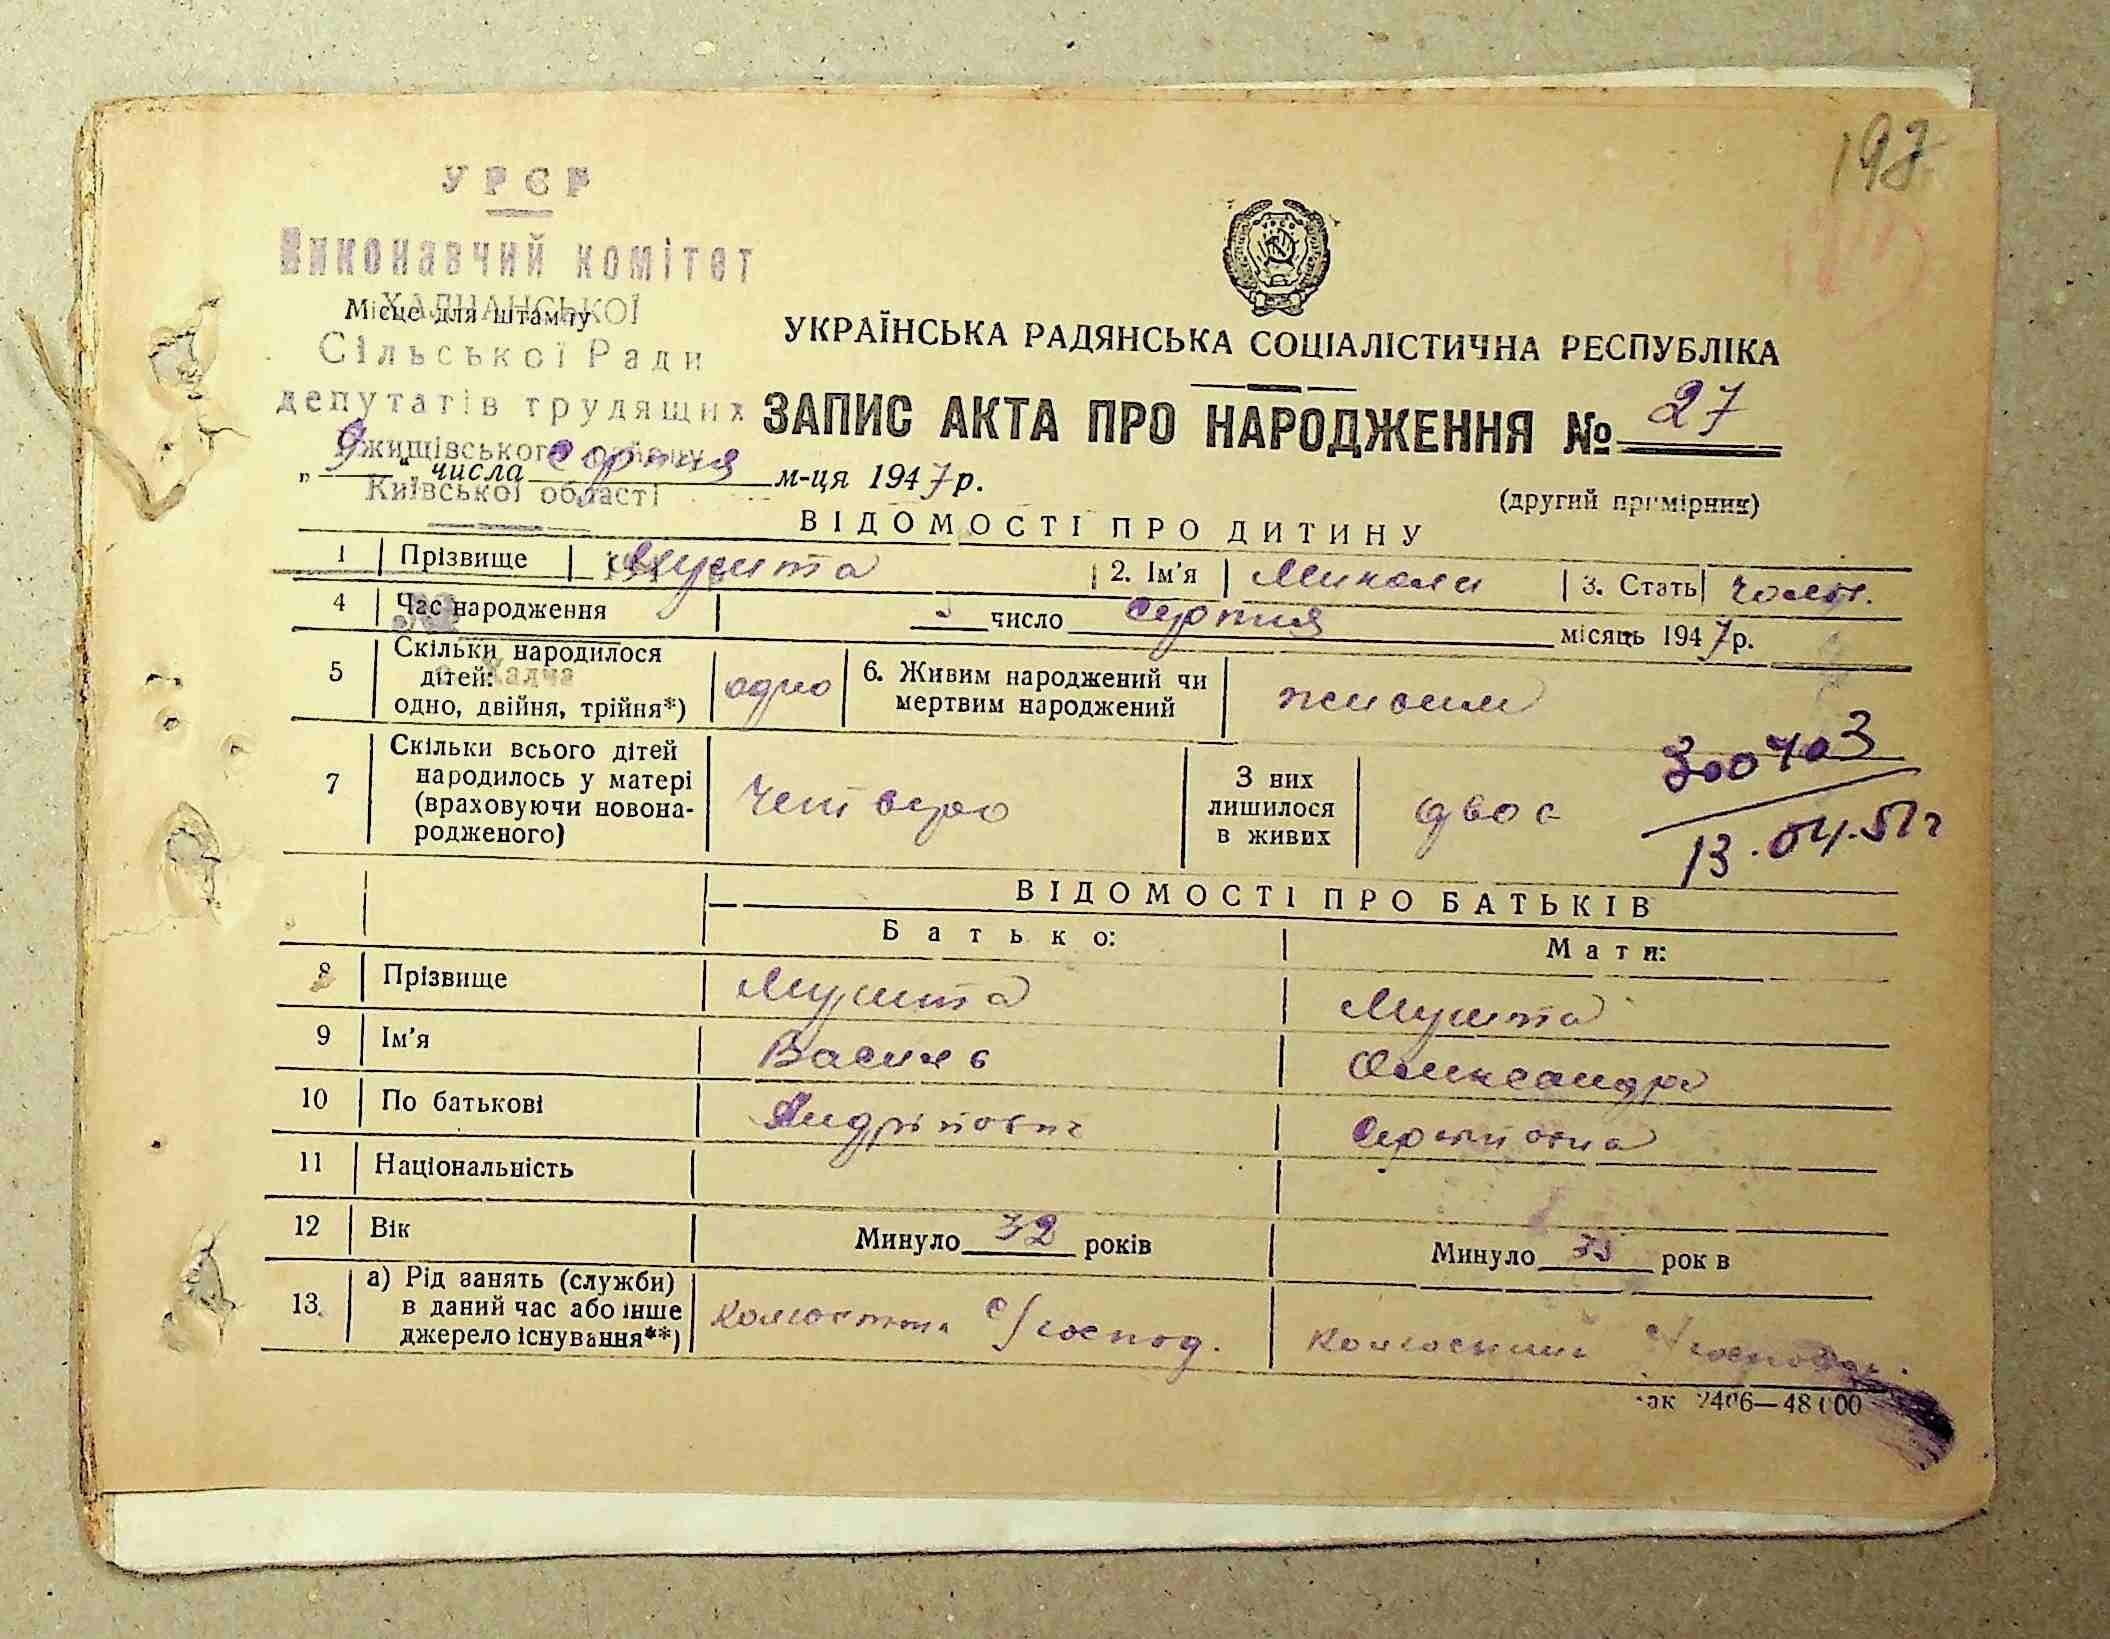 197
УРСР
Виконавчий комітет
Місце для штампу
ХАЛЧАНСЬКОЇ
Сільської Ради
депутатів трудящих
Ржищівського району
Київської області
УКРАЇНСЬКА РАДЯНСЬКА СОЦІАЛІСТИЧНА РЕСПУБЛІКА
ЗАПИС АКТА ПРО НАРОДЖЕННЯ № 27
„ 9 “ числа серпня м-ця 1947 р.
(другий примірник)
ВІДОМОСТІ ПРО ДИТИНУ
1 Прізвище Мушта 2. Ім'я Микола 3. Стать чолов.
4 Час народження число серпня місяць 1947 р.
5 Скільки народилося
дітей:
одно, двійня, трійня*) одно
с. Халча
6. Живим народжений чи
мертвим народжений живим
7 Скільки всього дітей
народилось у матері
(враховуючи новона-
родженого) четверо
З них
лишилося
в живих двоє
300403
13.04.51 г
ВІДОМОСТІ ПРО БАТЬКІВ
Батько: Мати:
8 Прізвище Мушта Мушта
9 Ім'я Василь Олександра
10 По батькові Андрійович Сергіївна
11 Національність
12 Вік Минуло 32 років Минуло рок в
13. а) Рід занять (служби)
в даний час або інше
джерело існування**) с/господ.
2406—48000